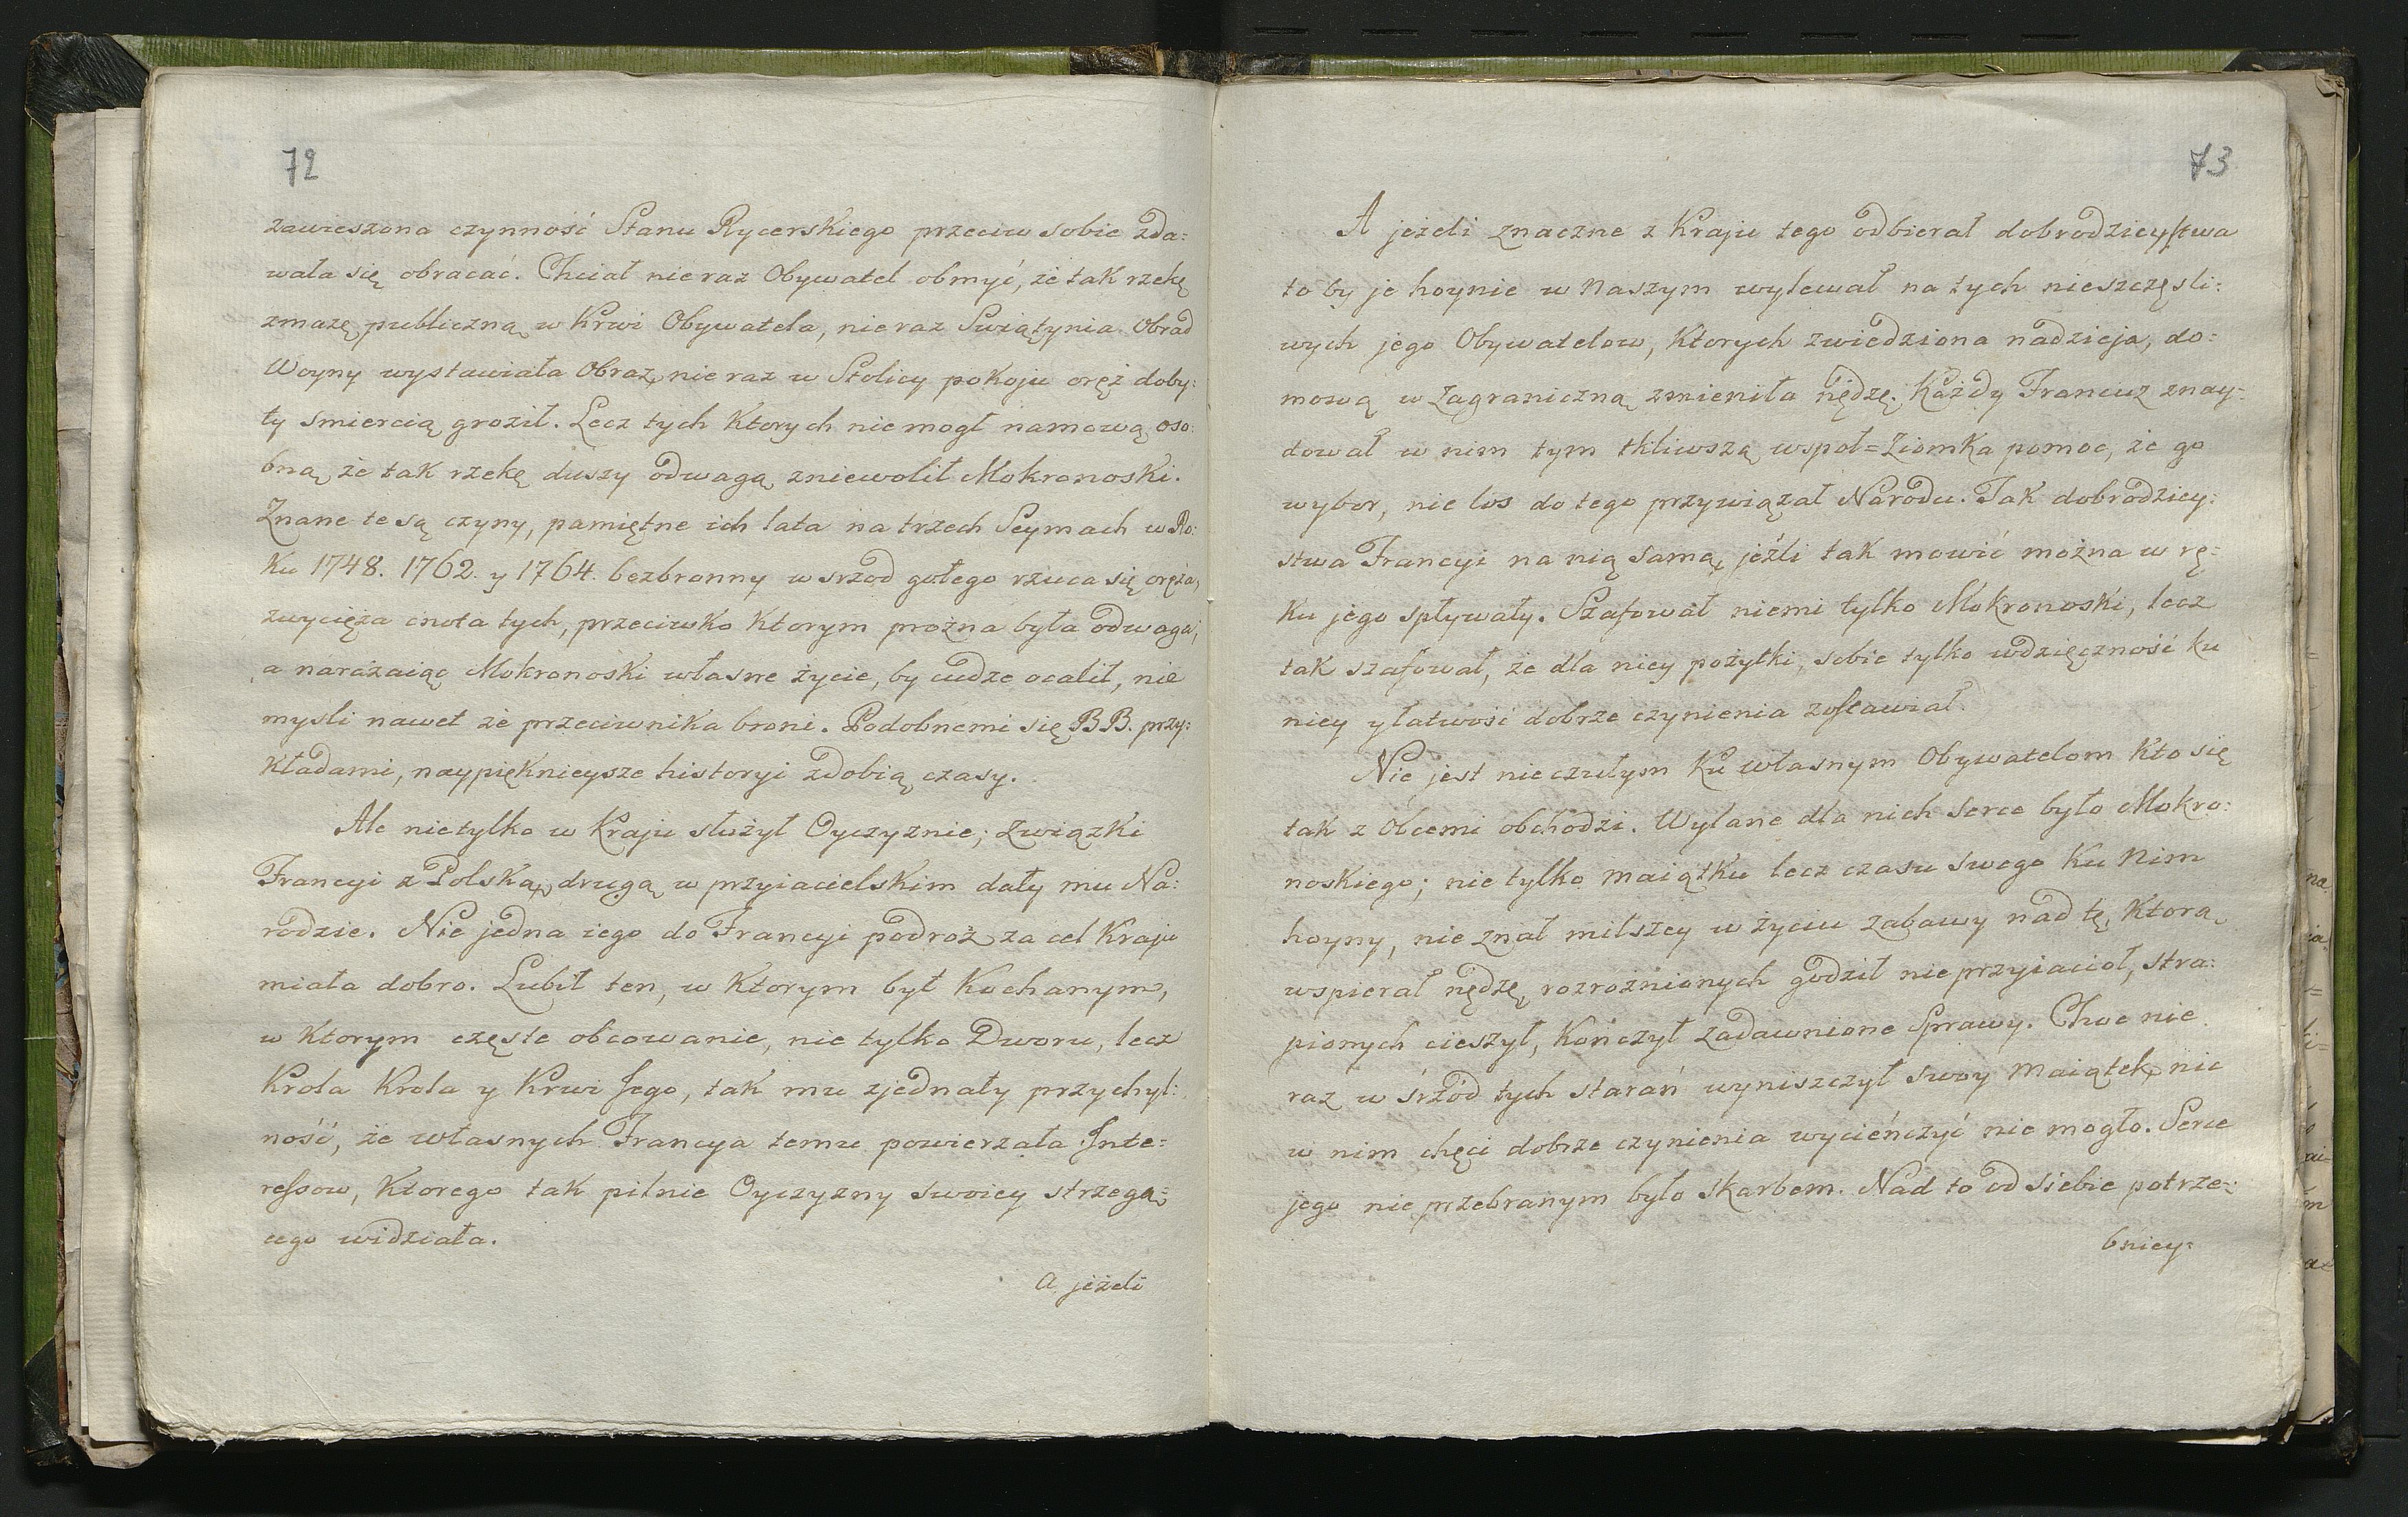 72
zawieszona czynność Stanu Rycerskiego przeciw sobie zda:
wała się obracać. Chciał nie raz Obywatel obmyć, że tak rzekę
zmazę publiczną w Krwi Obywatela, nie raz Swiątynia Obrad
Woyny wystawiała Obraz, nie raz w Stolicy pokoju oręż doby:
ty smiercią groził. Lecz tych Ktorych nie mogł namową oso:
bną że tak rzekę duszy odwagą zniewolił Mokronoski.
Znane te są czyny, pamiętne ich lata na trzech Seymach w Ro:
Ku 1748. 1762. y 1764. bezbronny w srzod gołego rzuca się oręża,
zwycięża cnota tych, przeciwko Ktorym prożna była odwaga;
a narażaiąc Mokronoski własne życie, by cudze ocalił, nie
mysli nawet że przeciwnika broni. Podobnemi się BB. przy:
Kładami, naypięknieysze historyi zdobią czasy.
Ale nie tylko w Kraju służył Oyczyznie; związki
Francyi z Polską, drugą w przyiacielskim dały mu Na:
rodzie. Nie jedna iego do Francyi podroż za cel Kraju
miała dobro. Lubił ten, w Ktorym był Kochanym,
w Ktorym częste obcowanie, nie tylko Dworu, lecz
Krola Krola y Krwi Jego, tak mu zjednały przychyl:
ność, że własnych Francya temu powierzała Inte=
ressow, Ktorego tak pilnie Oyczyzny swoiey strzegą:
cego widziała.
a jeżeli
73
A jeżeli znaczne z Kraju tego odbierał dobrodzieystwa
to by je hoynie w Naszym wylewał na tych nieszczęsli:
wych jego Obywatelow, Ktorych zwiedziona nadzieja, do=
mową w Zagraniczną zmieniła nędzę. Każdy Francuz znay=
dował w nim tym tkliwszą wspoł=Ziomka pomoc, że go
wybor, nie los do tego przywiązał Narodu. Tak dobrodziey:
stwa Francyi na nią samą, jeźli tak mowić można w rę=
Ku jego spływały. Szafował niemi tylko Mokronoski, lecz
tak szafował, że dla niey pożytki, sobie tylko wdzięczność ku
niey y łatwość dobrze czynienia zostawiał.
Nie jest nieczułym Ku własnym Obywatelom Kto się
tak z Obcemi obchodzi. Wylane dla nich serce było Mokro:
noskiego; nie tylko maiątku lecz czasu swego Ku Nim
hoyny, nie znał milszey w życiu zabawy nad tę, Ktorą
wspierał nędzę, rozrożnionych godził nieprzyiacioł, stra:
pionych cieszył, Kończył zadawnione Sprawy. Choc nie
raz w śrżód tych starań wyniszczył swoy Maiątek, nic
w nim chęci dobrze czynienia wycieńczyć nie mogło. Serce
jego nie przebranym było skarbem. Nad to od siebie potrze=
bniey: